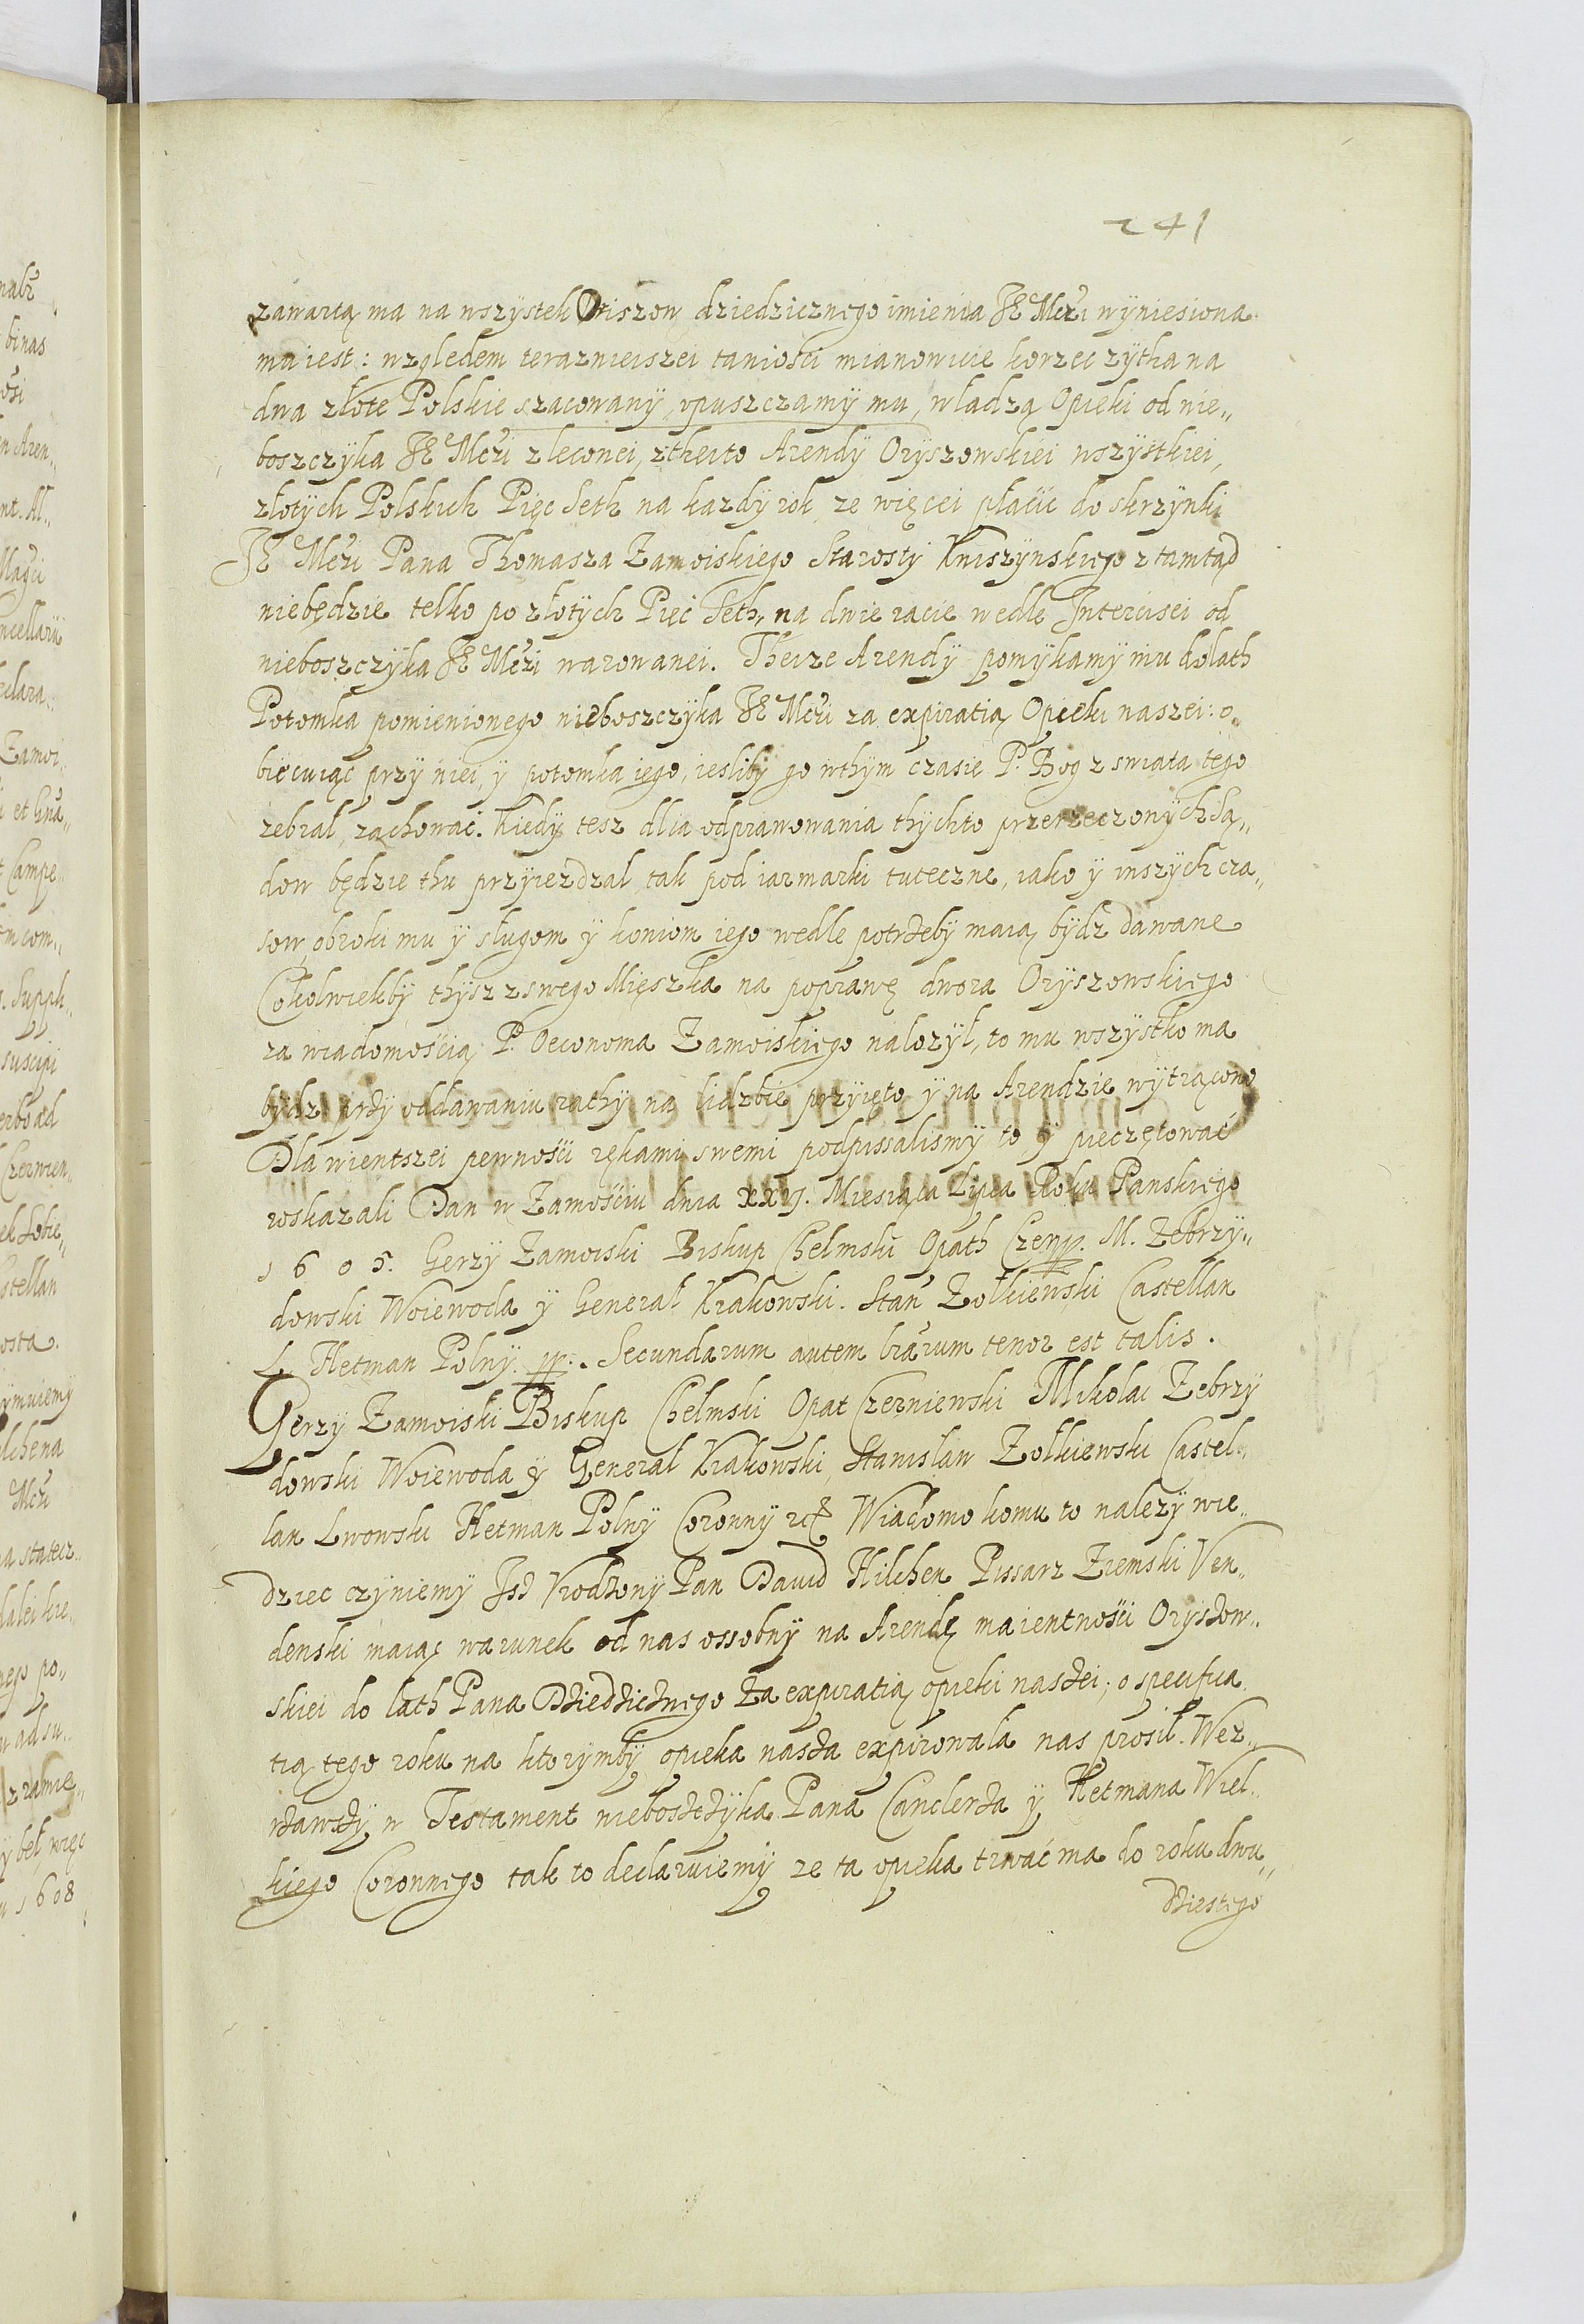 241
zawartą ma na wszystek Oriszow dziedzicznego imienia JE Mczi wyniesiona
ma iest: względem teraznieiszei taniości mianowicie korzec zytha na
dwa złote Polskie szacowany, opuszczamy mu, władzą Opieki od nie„
boszczyka JE Mczi zleconei, ztheito Arendy Oryszowskiei wszystkiei,
złotych Polskich Pięc Seth na kazdy rok, ze więcei płacic do skrzynki
JE Mczi Pana Thomasza Zamoiskiego Starosty Kniszynskiego z tamtąd
niebędzie telko po złotych Pięć Seth, na dwie racie wedle Intercisei od
nieboszczyka JE Mczi warowanei. Theize Arendy pomykamy mu do lath
Potomka pomienionego nieboszczyka JE Mczi za expiratią Opieki naszei: o„
biecuiąc przy niei, y potomka iego, iesliby go wthym czasie P. Bog z swiata tego
zebrał, zachować. Kiedy tesz dlia odprawowania thychto przerzeczonych Są„
dow będzie thu przyiezdzał, tak pod iarmarki tuteczne, iako y inszych cza„
sow, obroki mu y sługom y koniom iego wedle potrzeby maią bydz dawane
Cokolwiekby thysz z swego Mięszka na poprawę dwora Oryszowskiego
za wiadomoscią P. Oeconoma Zamoiskiego nalozył, to mu wszystko ma
bydz przy oddawaniu rathy na lidzbie przyięto y na Arendzie wytrącono
Dla wientszei pewności rękami swemi podpissalismy to y pieczętować
roskazali Dan w Zamościu dnia xxvj. Miesiąca Lipca Roku Panskiego
1605. Gerzy Zamoiski Biskup Chelmski Opath Czerw. M. Zebrzy„
dowski Woiewoda y Generał Krakowski. Stan Zołkiewski Castellan
L. Hetman Polny. pp. Secundarum autem lrarum tenor est talis.
Gerzy Zamoiski Biskup Chelmski Opat Czerwienski Mikołai Zebrzy
dowski Woiewoda y Generał Krakowski, Stanisław Zołkiewski Castel„
lan Lwowski Hetman Polny Coronny etc Wiadomo komu to nalezy wie„
dziec czyniemy Isz Vrodzony Pan Dawid Hilchen Pissarz Ziemski Ven„
denski maiąc warunek od nas ossobny na Arendę maientności Oryszow„
skiei do lath Pana Dziedzicznego za expiratią opieki naszei; o specifica
tią tego roku na ktorymby opieka nasza expirowała nas prosił. Weź„
rzawszy w Testament nieboszczyka Pana Canclerza y Hetmana Wiel„
kiego Coronnego tak to declaruiemy ze ta opieka trwać ma do roku dwu„
dziestego